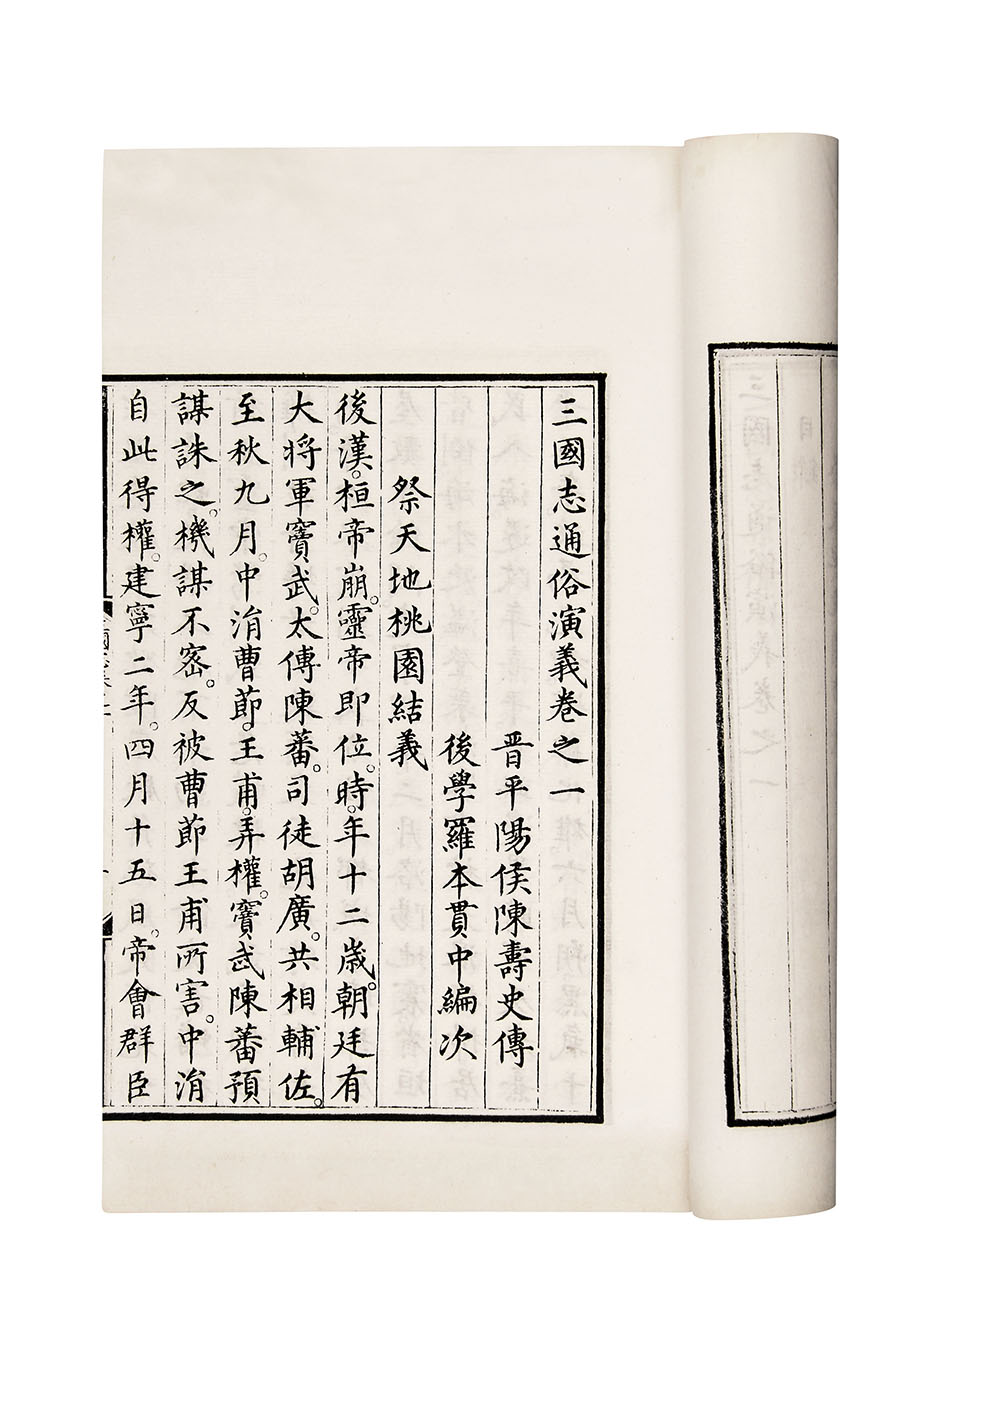 三國志通俗演義卷之一
晋平陽侯陳壽史傳
後學羅本貫中編次
祭天地桃園結義
後漢。桓帝崩。靈帝即位。時年十二歲。朝廷有
大將軍竇武。太傅陳蕃。司徒胡廣。共相輔佐。
至秋九月。中涓曹節。王甫。弄權。竇武陳蕃預
謀誅之。機謀不密。反被曹節王甫所害。中涓
自此得權。建寧二年。四月十五日。帝會群臣